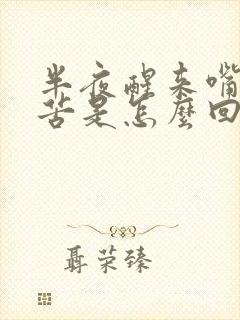 半夜醒来嘴
苦是怎麼回
聶荣臻